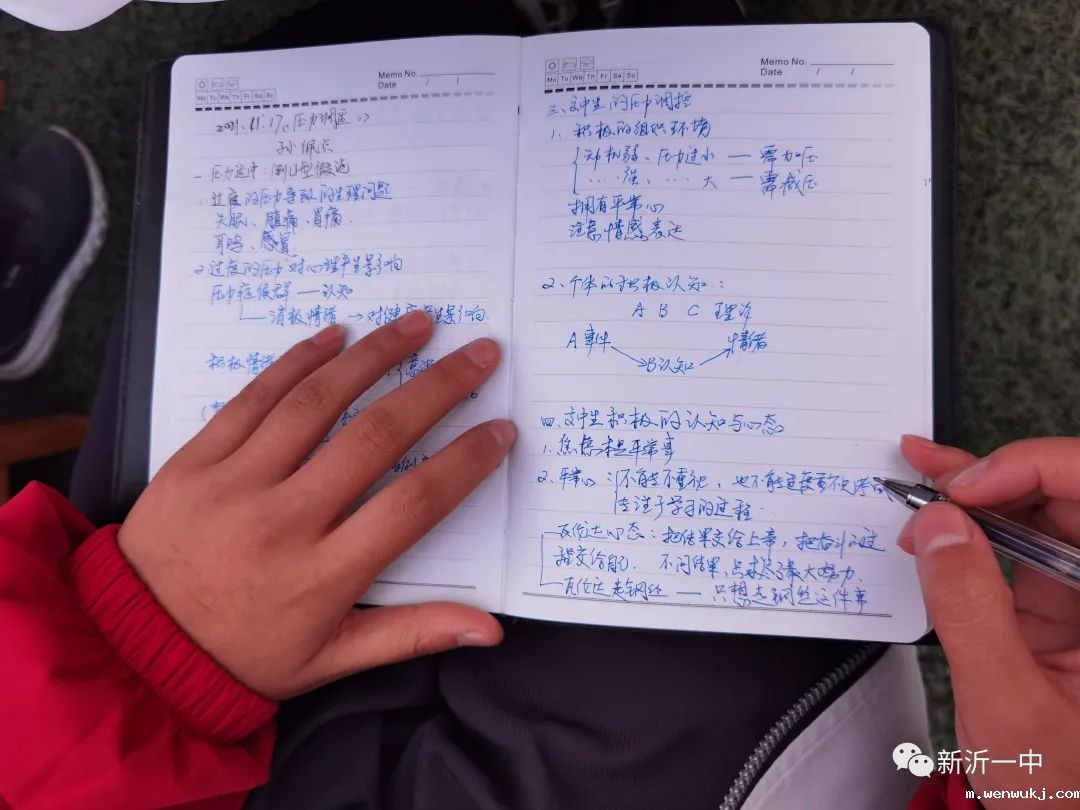 Memo No.
Date / /
Mo Tu We Th Fr Sa Su
2021.11.17《压力调适》
孙佩兵
一压力适中:倒U型假说
1.过度的压力导致的生理问题
失眠、腹痛、胃痛、
耳鸣、感冒
2过度的压力对心理产生影响
压力症候群—认知
消极情绪→对健康产生影响
积极情绪
Memo No.
Date / /
Mo Tu We Th Fr Sa Su
三、高中生的压力调控
1.积极的组织环境
动机弱、压力过小 — 需加压
……强、……大 — 需减压
拥有平常心
注意情感表达
2、个体的积极认知:
A B C 理论
A事件 情绪
B认知
四、高中生积极的认知与心态
1.焦虑本是平常事
2.平常心:不能不重视,也不能
专注于学习的过程
瓦伦达心态:把结果交给上帝,把奋斗过
程交给自己. 不问结果,只求尽了最大努力.
瓦伦达走钢丝 — 只想走钢丝这件事
新沂一中
m.wenwukj.com